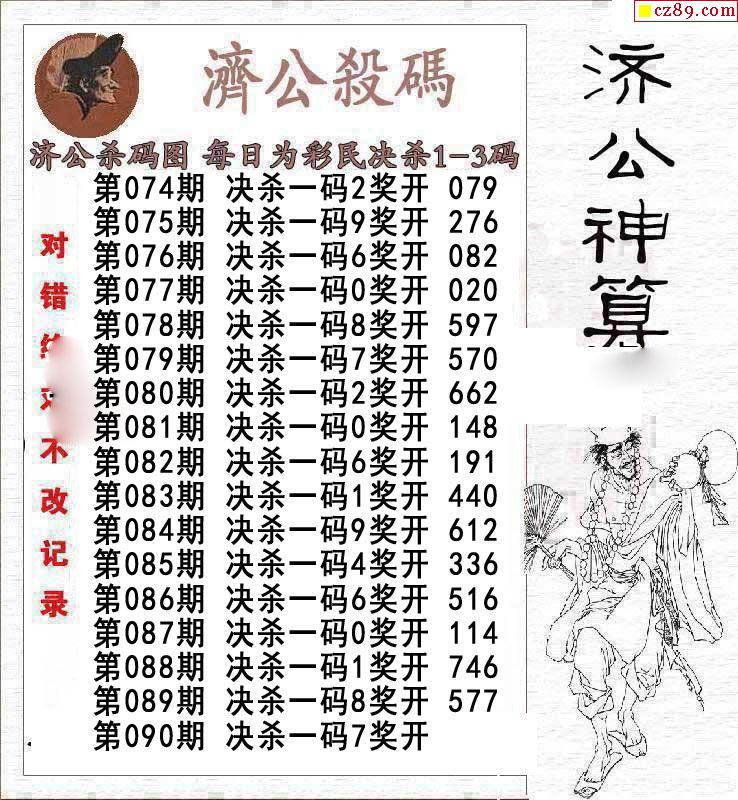 cz89.com
濟公殺碼
济公杀码图 每日为彩民决杀1-3码
第074期 决杀一码2奖开 079
第075期 决杀一码9奖开 276
第076期 决杀一码6奖开 082
第077期 决杀一码0奖开 020
第078期 决杀一码8奖开 597
第079期 决杀一码7奖开 570
第080期 决杀一码2奖开 662
第081期 决杀一码0奖开 148
第082期 决杀一码6奖开 191
第083期 决杀一码1奖开 440
第084期 决杀一码9奖开 612
第085期 决杀一码4奖开 336
第086期 决杀一码6奖开 516
第087期 决杀一码0奖开 114
第088期 决杀一码1奖开 746
第089期 决杀一码8奖开 577
第090期 决杀一码7奖开
对错绝对不改记录
济公神算